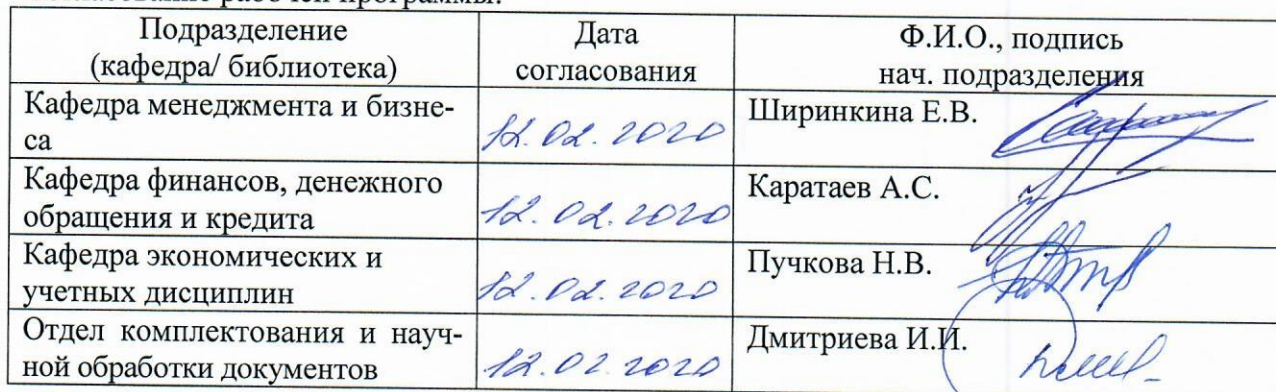 Подразделение
(кафедра/ библиотека)
Дата
согласования
Ф.И.О., подпись
нач. подразделения
Кафедра менеджмента и бизне-
са
12.02.2020
Ширинкина Е.В.
Кафедра финансов, денежного
обращения и кредита
12.02.2020
Каратаев А.С.
Кафедра экономических и
учетных дисциплин
12.02.2020
Пучкова Н.В.
Отдел комплектования и науч-
ной обработки документов
12.02.2020
Дмитриева И.И.